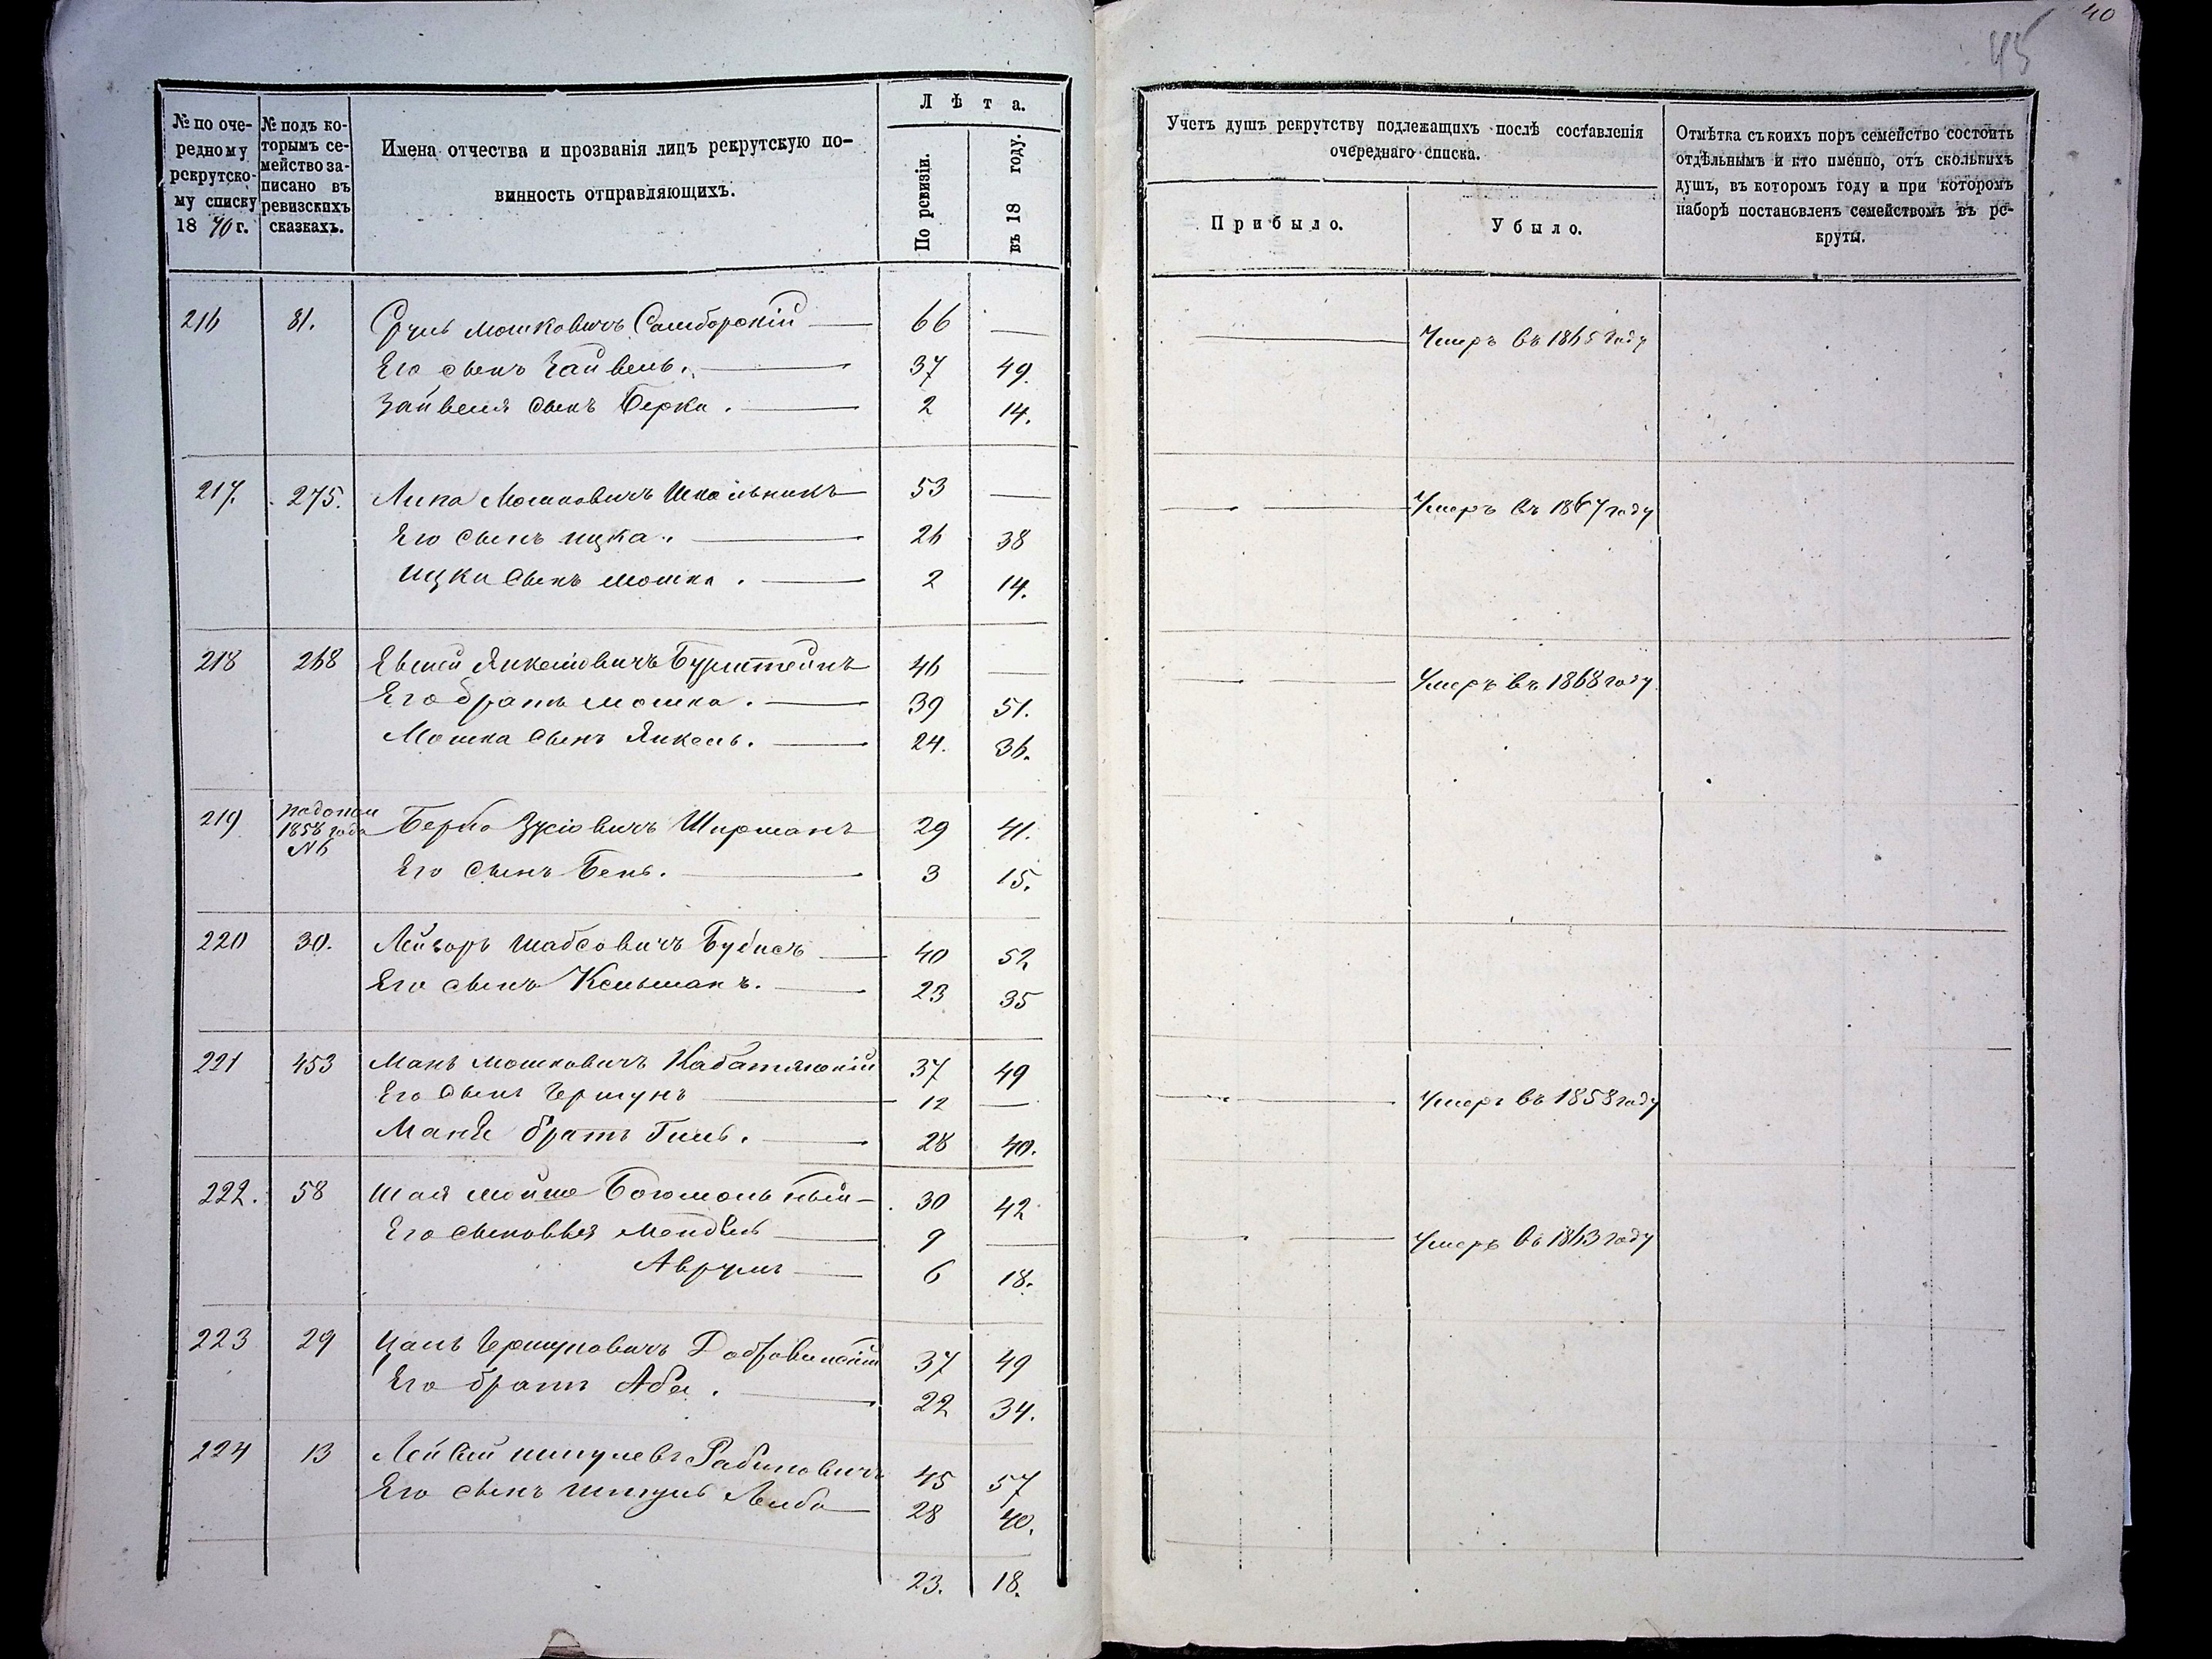 40
45
№ по оче-
редному
рекрутско-
му списку
18 70 г.
№ подъ ко-
торымъ се-
мейство за-
писано въ
ревизскихъ
сказкахъ.
Имена отчества и прозванія лицъ рекрутскую по-
винность отправляющихъ.
Лѣта.
По ревизіи.
въ 18 году.
Учетъ душъ рекрутству подлежащихъ послѣ составленія
очереднаго списка.
Прибыло.
Убыло.
Отмѣтка съ коихъ поръ семейство состоитъ
отдѣльнымъ и кто именно, отъ сколькихъ
душъ, въ которомъ году и при которомъ
наборѣ постановленъ семействомъ въ ре-
круты.
216 81. Сруль Мошковичъ Самборскій 66 — Умеръ въ 1865 году
Его сынъ Зайвель. 37 49.
Зайвеля сынъ Берко. 2 14.
217. 275. Липа Мошковичъ Школьникъ 53 — Умеръ въ 1867 году
Его сынъ Ицка. 26 38
Ицки сынъ Мошко. 2 14.
218 268 Янкелiовичъ Бурштейнъ 46 — Умеръ въ 1868 году
Его братъ Мошко. 39 51.
Мошка сынъ Янкель. 24. 36.
219 1858 года №6 Берко Зусіовичъ Ширманъ 29 41.
Его сынъ Бень. 3 15.
220 30. Лейзоръ Шабсовичъ Бубисъ 40 52
Его сынъ Кельманъ. 23 35
221 453 Манъ Мошковичъ Кабатянскій 37 49
Его сынъ Гершунъ 12 — Умеръ въ 1858 году
Маня братъ Гиль. 28 40.
222. 58 Шая Мойше Богомольный 30 42
Его сыновья Мендель 9 — Умеръ въ 1863 году
Аврумъ 6 18.
223 29 Гершуновичъ Добровинскій 37 49
Его братъ Аба. 22 34.
224 13 Шмулевъ Рабиновичъ 45 57
Его сынъ Шмуль Лейба 28 40.
23. 18.